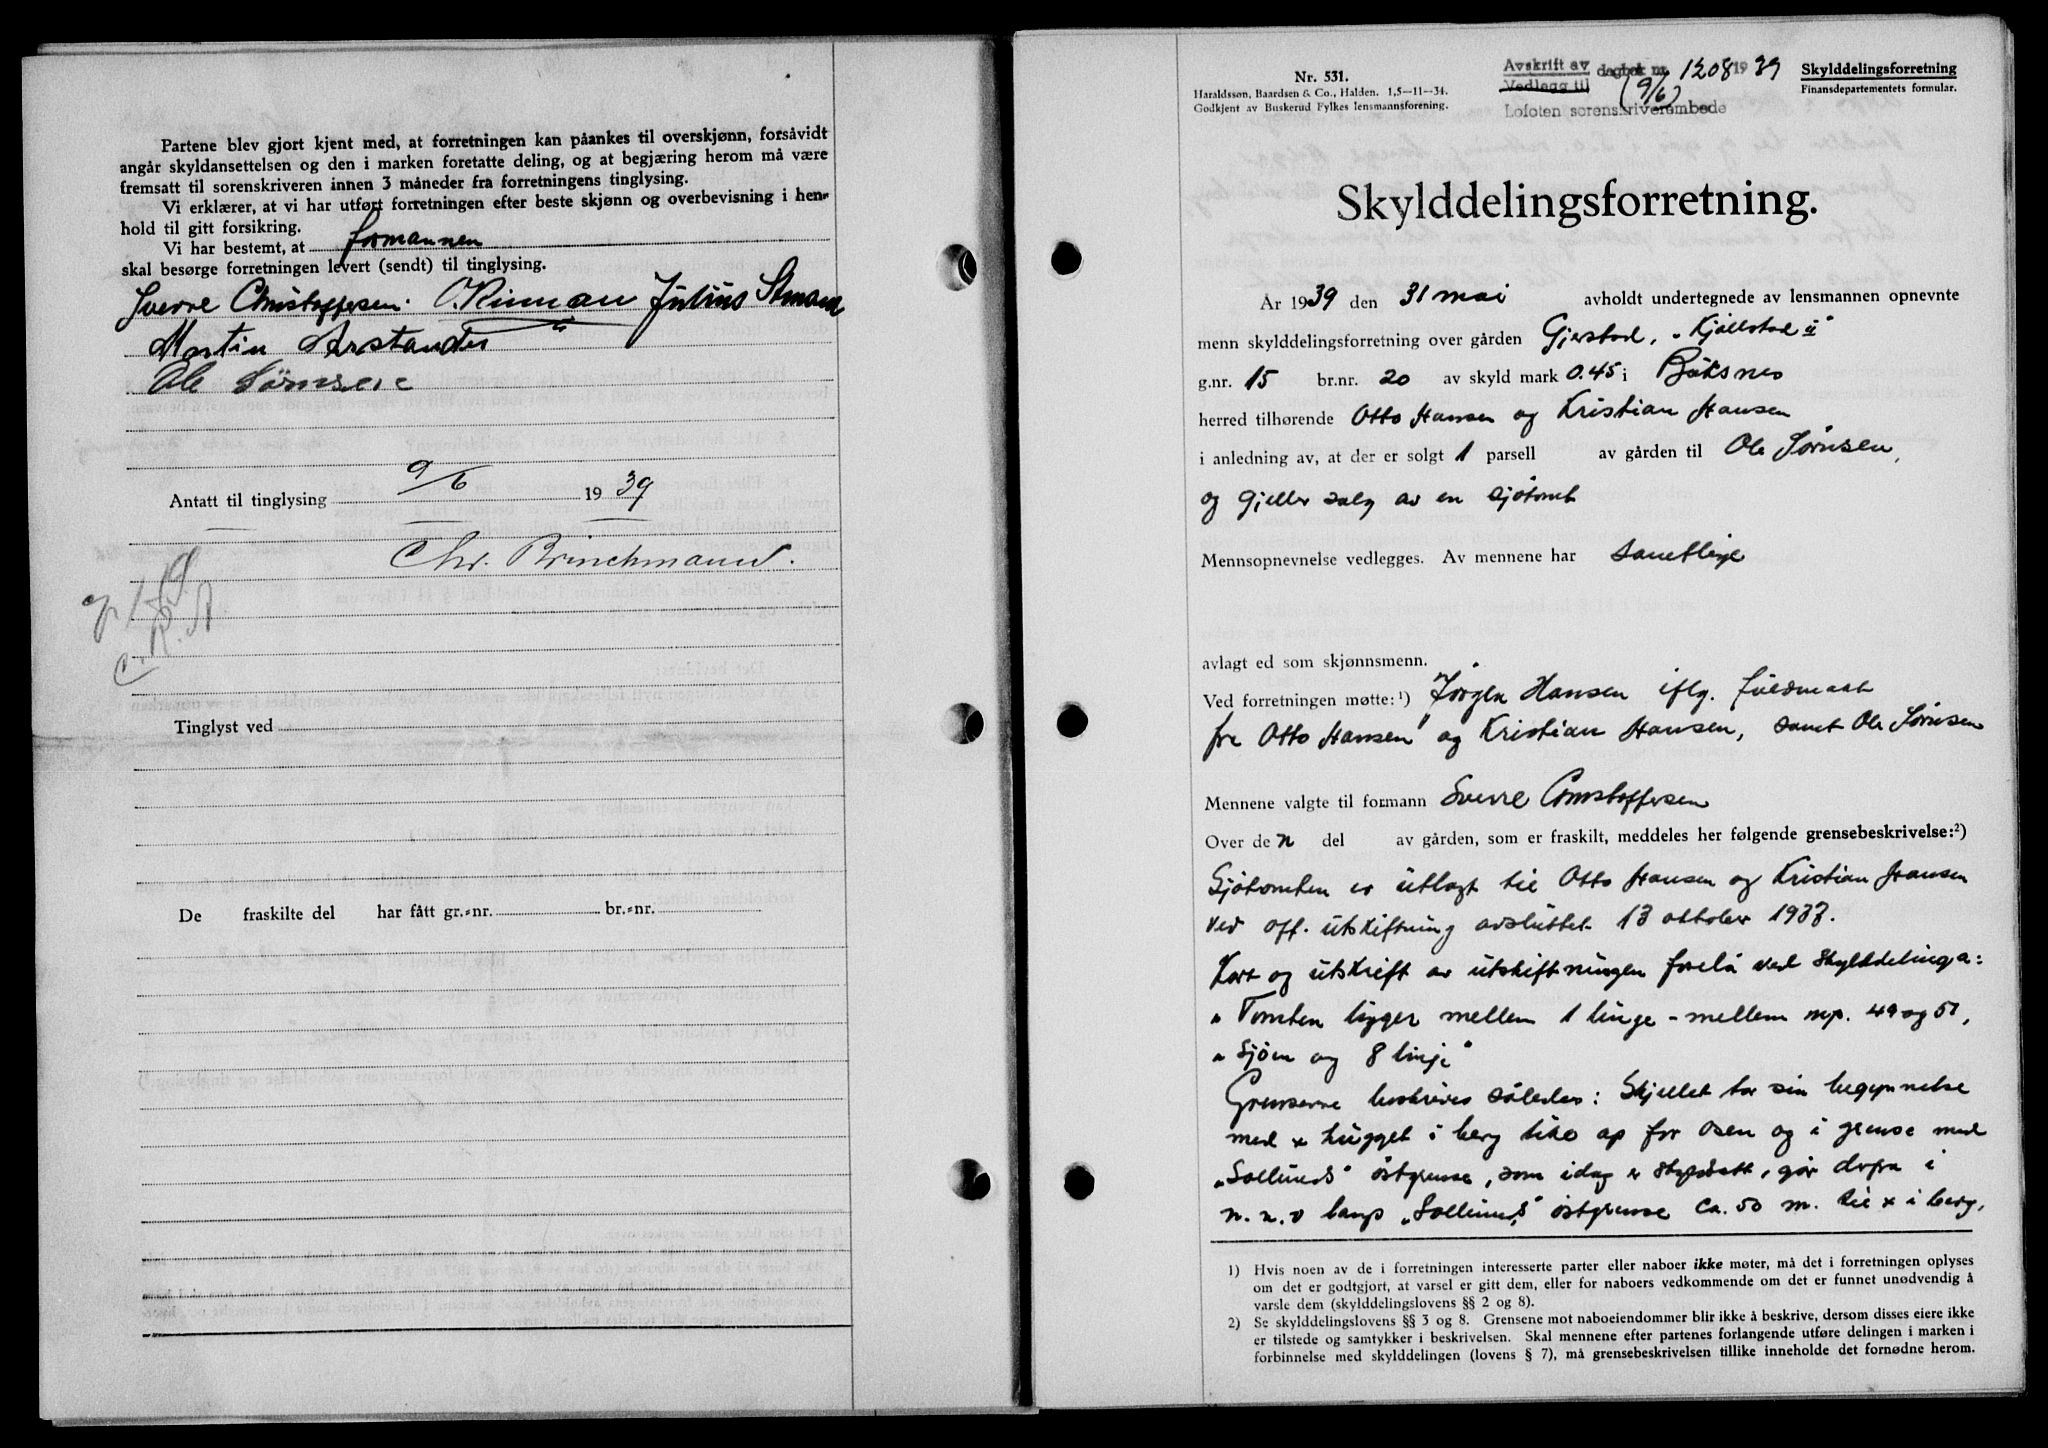 Partene blev gjort kjent med, at forretningen kan påankes til overskjønn, forsåvidt
angår skyldansettelsen og den i marken foretatte deling, og at begjæring herom må være
fremsatt til sorenskriveren innen 3 måneder fra forretningens tinglysing.
Vi erklærer, at vi har utført forretningen efter beste skjønn og overbevisning i hen-
hold til gitt forsikring.
Vi har bestemt, at formannen
skal besørge forretningen levert (sendt) til tinglysing.
Sverre Christoffersen. O. Rinnan Julius
Martin Arstander
Ole Sørnsen
Antatt til tinglysing 9/6 1939
Chr. Brinchmann.
Tinglyst ved
De fraskilte del har fått gr.-nr. br.-nr.
Nr. 531.
Haraldsson, Baardsen & Co., Halden. 1,5—11—34.
Godkjent av Buskerud Fylkes lensmannsforening.
Avskrift av
Vedlegg til
dagbok nr. 1208 1939
(9/6)
Lofoten sorenskriverembede
Skylddelingsforretning
Finansdepartementets formular.
Skylddelingsforretning.
År 1939 den 31 mai avholdt undertegnede av lensmannen opnevnte
menn skylddelingsforretning over gården Gjerstad, "Kjøllstad II"
g.nr. 15 br.nr. 20 av skyld mark 0.45 i Buksnes
herred tilhørende Otto Hansen og Kristian Hansen
i anledning av, at der er solgt 1 parsell av gården til Ole Sørnsen,
og gjeller salg av en sjøtomt
Mennsopnevnelse vedlegges. Av mennene har samtlige
avlagt ed som skjønnsmenn.
Ved forretningen møtte:¹) Jørgen Hansen iflg. fuldmakt
fra Otto Hansen og Kristian Hansen, samt Ole Sørnsen
Mennene valgte til formann Sverre Christoffersen
Over den del av gården, som er fraskilt, meddeles her følgende grensebeskrivelse:²)
Sjøtomten er utlagt til Otto Hansen og Kristian Hansen
ved off. utskiftning avsluttet 13 oktober 1933.
Kart og utskrift av utskiftningen forelå ved skylddelinga:
" Tomten ligger mellem 1 linje - mellem mp. 49 og 51,
" Sjøen og 8 linje"
Grensene beskrives således: Skjellet tar sin begynnelse
med x hugget i berg like op for osen og i grense med
"Sollunds" østgrense, som idag er skyldsatt, går derfra i
n.n.v langs "Sollunds" østgrense ca. 50 m. til x i berg,
1) Hvis noen av de i forretningen interesserte parter eller naboer ikke møter, må det i forretningen oplyses
om det er godtgjort, at varsel er gitt dem, eller for naboers vedkommende om det er funnet unødvendig å
varsle dem (skylddelingslovens §§ 2 og 8).
2) Se skylddelingslovens §§ 3 og 8. Grensene mot naboeiendommer blir ikke å beskrive, dersom disses eiere ikke
er tilstede og samtykker i beskrivelsen. Skal mennene efter partenes forlangende utføre delingen i marken i
forbinnelse med skylddelingen (lovens § 7), må grensebeskrivelsen tillike inneholde det fornødne herom.